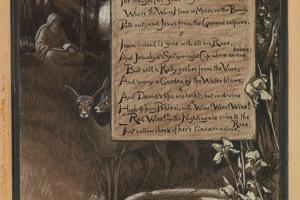 Where the White Hand of Moses on the Bough
Puts out, and Jesus from the Ground suspires.
Iram indeed is gone with all his Rose,
And Jamshyd's Sev'n-ring'd Cup where no one knows;
But still a Ruby gushes from the Vine,
And many a Garden by the Water blows.
And David's lips are lockt; but in divine
High-piping Pehlevi, with Wine! Wine! Wine!
Red Wine!—the Nightingale cries to the Rose
That sallow cheek of hers t'incarnadine.